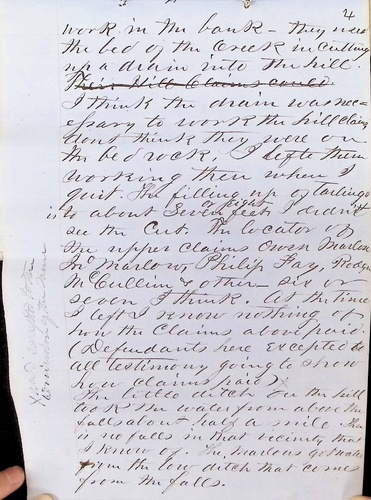 4
work in the bank - they used
the bed of the Creek in Cutting
up a drain into the hill.
Their Hill Claims could
I think the drain was nec-
essary to work the hill claim
dont think they were on
the bed rock, I lefte them
working them when I
quit. The filling up of tailings
or eight
is to about Seven feet I didn't
see the Cut. The locator of
the upper claims Owen Marlow
Jno Marlow, Philip Fay, Rodger
McCullin & other - six or
seven I think. At the time
I left I know nothing of
how the Claims above paid.
(Defendants here excepted to
all testimony going to show
how claims paid)
The little ditch on the hill
took the water from above the
falls about half a mile. There
is no falls in that vicinity that
I know of. The Marlows got water
from the low ditch that comes
from the falls.